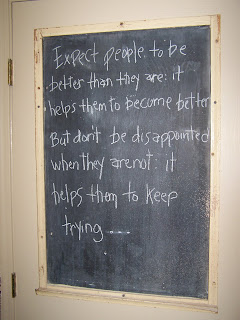 Expect people to be
better than they are: it
helps them to become better
But don't be disappointed
when they are not: it
helps them to keep
trying ---